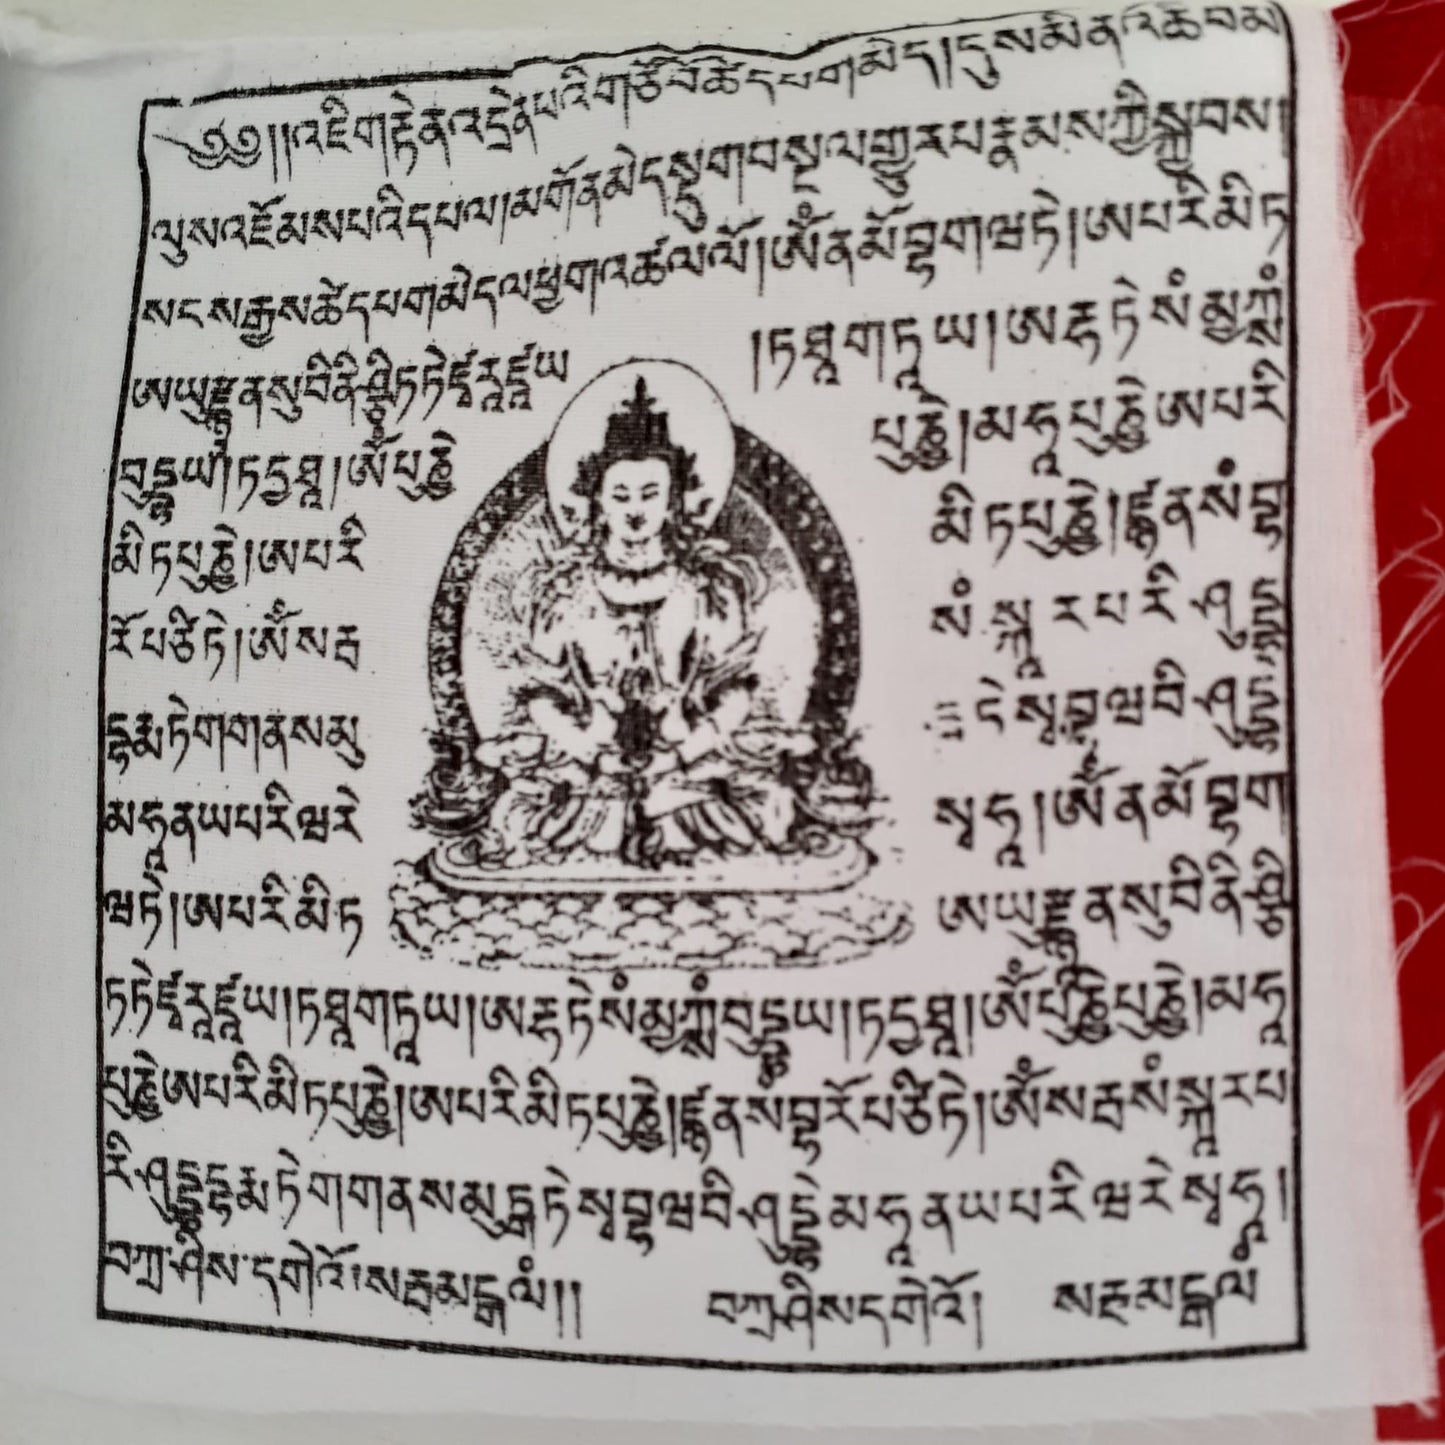 ༄༅།།འཇིགརྟེནའདྲེནཔའིགཙོབོཚེདཔགམེད།དུསམིནའཆིབམ
ལུསའཇོམསཔའིདཔལ།མགོནམེདསྡུགབསྔལགྱུརཔརྣམསཀྱིསྐྱབས།
སངསརྒྱསཚེདཔགམེདལཕྱགའཚལལོ།ཨོཾནམོབྷགཝཏེ།ཨཔརིམིཏ
ཨཡུརྫྙནསུབིནིཤྩིཏཏེཛྭརཱཛཱཡ །ཏཐཱགཏཱཡ།ཨརྷཏེསཾམྱཀྶཾ
བུདྡྷཡ།ཏདྱཐཱ།ཨོཾཔུཎྱེ པུཎྱེ།མཧཱཔུཎྱེཨཔརི
མིཏཔུཎྱེ།ཨཔརི མིཏཔུཎྱེ།ཛྙནསཾབྷ
རོཔཙིཏེ།ཨོཾསརྦ སཾསྐཱརཔརིཤུདྡྷ
དྷརྨཏེགགནསམུ ཏེསྭབྷཝབིཤུདྡྷ
མཧཱནཡཔརིཝརེ སྭཧཱ།ཨོཾནམོབྷག
ཝཏེ།ཨཔརིམིཏ ཨཡུརྫྙནསུབིནིཤྩི
ཏཏེཛྭརཱཛཱཡ།ཏཐཱགཏཱཡ།ཨརྷཏེསཾམྱཀྶཾབུདྡྷཡ།ཏདྱཐཱ།ཨོཾཔུཎྱེཔུཎྱེ།མཧཱ
པུཎྱེཨཔརིམིཏཔུཎྱེ།ཨཔརིམིཏཔུཎྱེ།ཛྙནསཾབྷརོཔཙིཏེ།ཨོཾསརྦསཾསྐཱརཔ
རིཤུདྡྷདྷརྨཏེགགནསམུདྒཏེསྭབྷཝབིཤུདྡྷེམཧཱནཡཔརིཝརེསྭཧཱ།
བཀྲ་ཤིས་དགེའོ།སརྦམངྒལཾ།། བཀྲཤིསདགེའོ། སརྦམངྒལཾ